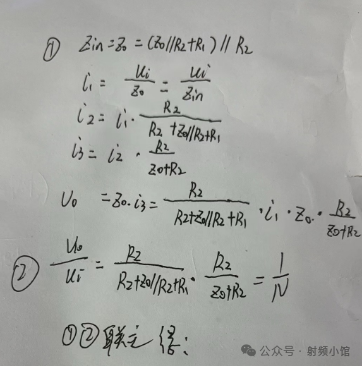 ① Zin=Z0=(Z0//R2+R1)//R2
i1=Ui/Z0=Ui/Zin
i2=i1·R2/(R2+Z0//R2+R1)
i3=i2·R2/(Z0+R2)
U0=Z0·i3=R2/(R2+Z0//R2+R1)·i1·Z0·R2/(Z0+R2)
② U0/Ui=R2/(R2+Z0//R2+R1)·R2/(Z0+R2)=1/N
①②联立得:
公众号·射频小馆